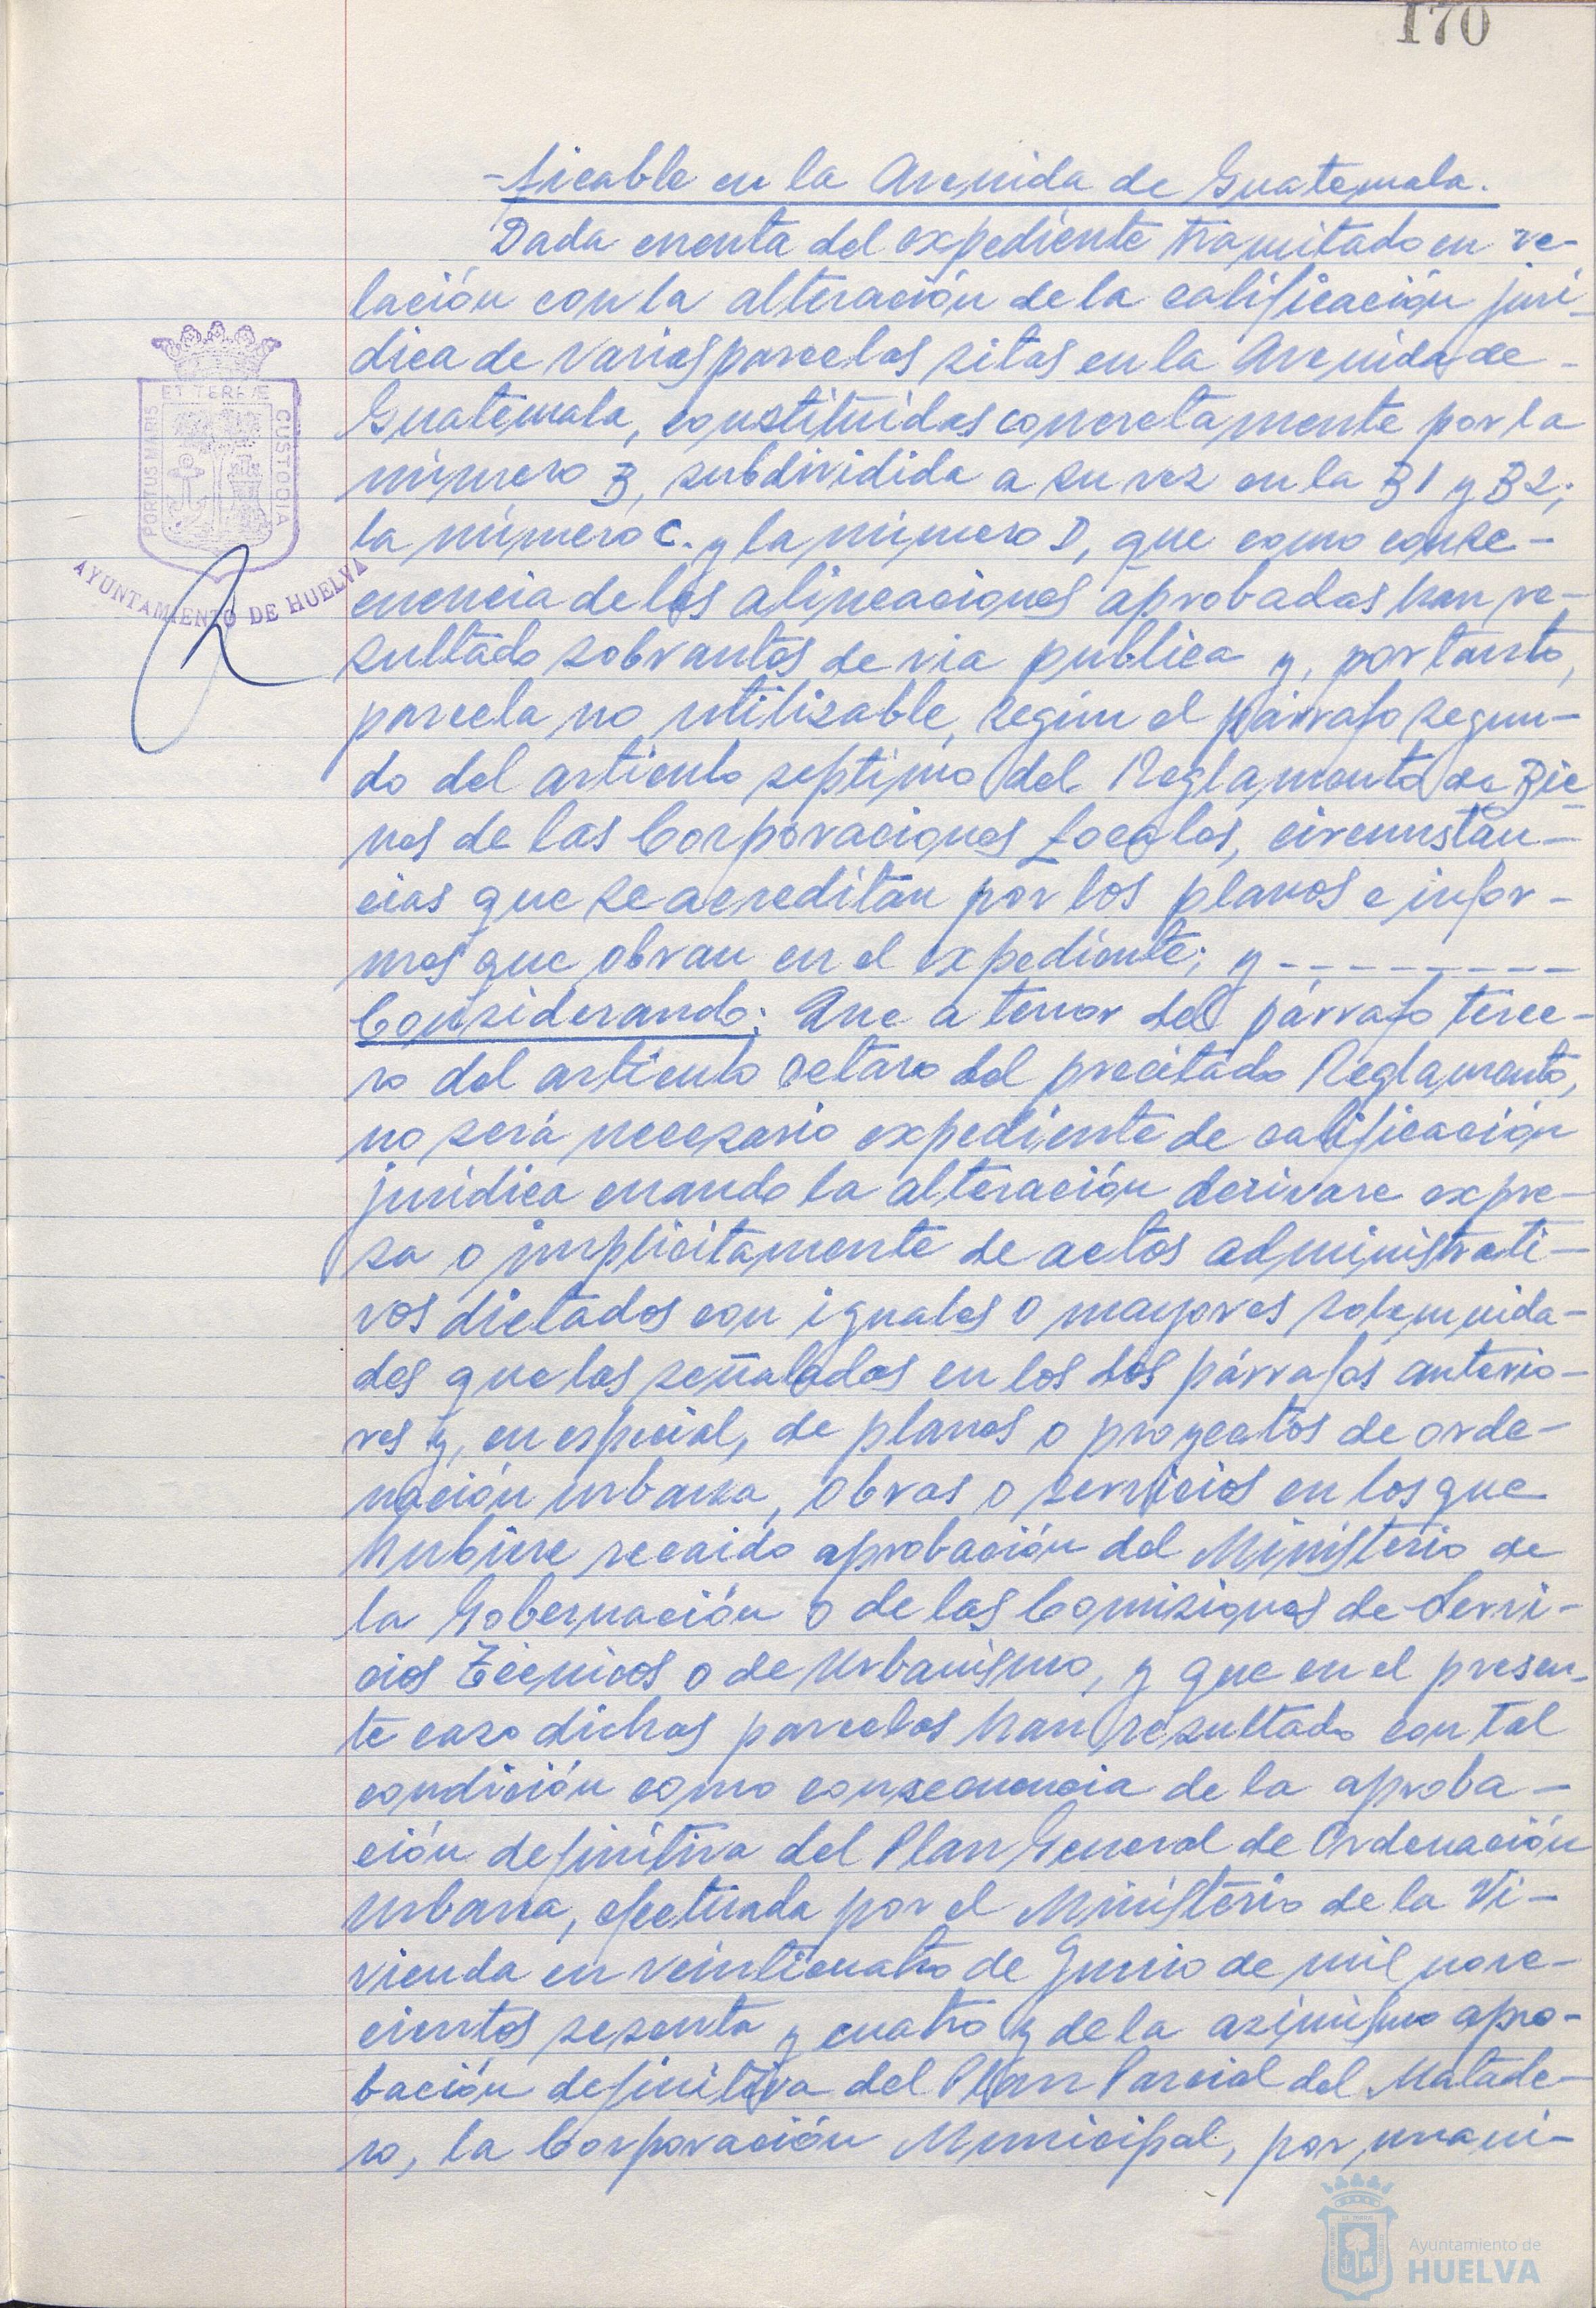 170
-ficable en la Avenida de Guatemala.
Dada cuenta del expediente tramitado en re-
lación con la alteración de la calificación juri-
dica de varias parcelas sitas en la Avenida de -
Guatemala, constituidas concretamente por la
número B, subdividida a su vez en la B1 y B2;
la número C. y la número D, que como conse-
cuencia de las alineaciones aprobadas han re-
sultado sobrantes de via publica y, por tanto,
parcela no utilizable, según el párrafo segun-
do del articulo septimo del Reglamento de Bie-
nes de las Corporaciones Locales, circunstan-
cias que se acreditan por los planos e infor-
mes que obran en el expediente; y ---------
Considerando: Que a tenor del párrafo terce-
ro del articulo octavo del precitado Reglamento,
no será necesario expediente de calificación
juridica cuando la alteración derivare expre-
sa o implicitamente de actos administrati-
vos dictados con iguales o mayores solemnida-
des que las señaladas en los dos párrafos anterio-
res y, en especial, de planes o proyectos de orde-
nación urbana, obras o servicios en los que
hubiere recaido aprobación del Ministerio de
la Gobernación o de las Comisiones de Servi-
cios Técnicos o de Urbanismo, y que en el presen-
te caso dichas parcelas han resultado con tal
condición como consecuencia de la aproba-
ción definitiva del Plan General de Ordenación
Urbana, efectuada por el Ministerio de la Vi-
vienda en veinticuatro de Junio de mil nove-
cientos sesenta y cuatro y de la asimismo apro-
bación definitiva del Plan Parcial del Matade-
ro, la Corporación Municipal, por unani-
PORTUS MARIS
ET TERRÆ
CUSTODIA
AYUNTAMIENTO DE HUELVA
Ayuntamiento de
HUELVA